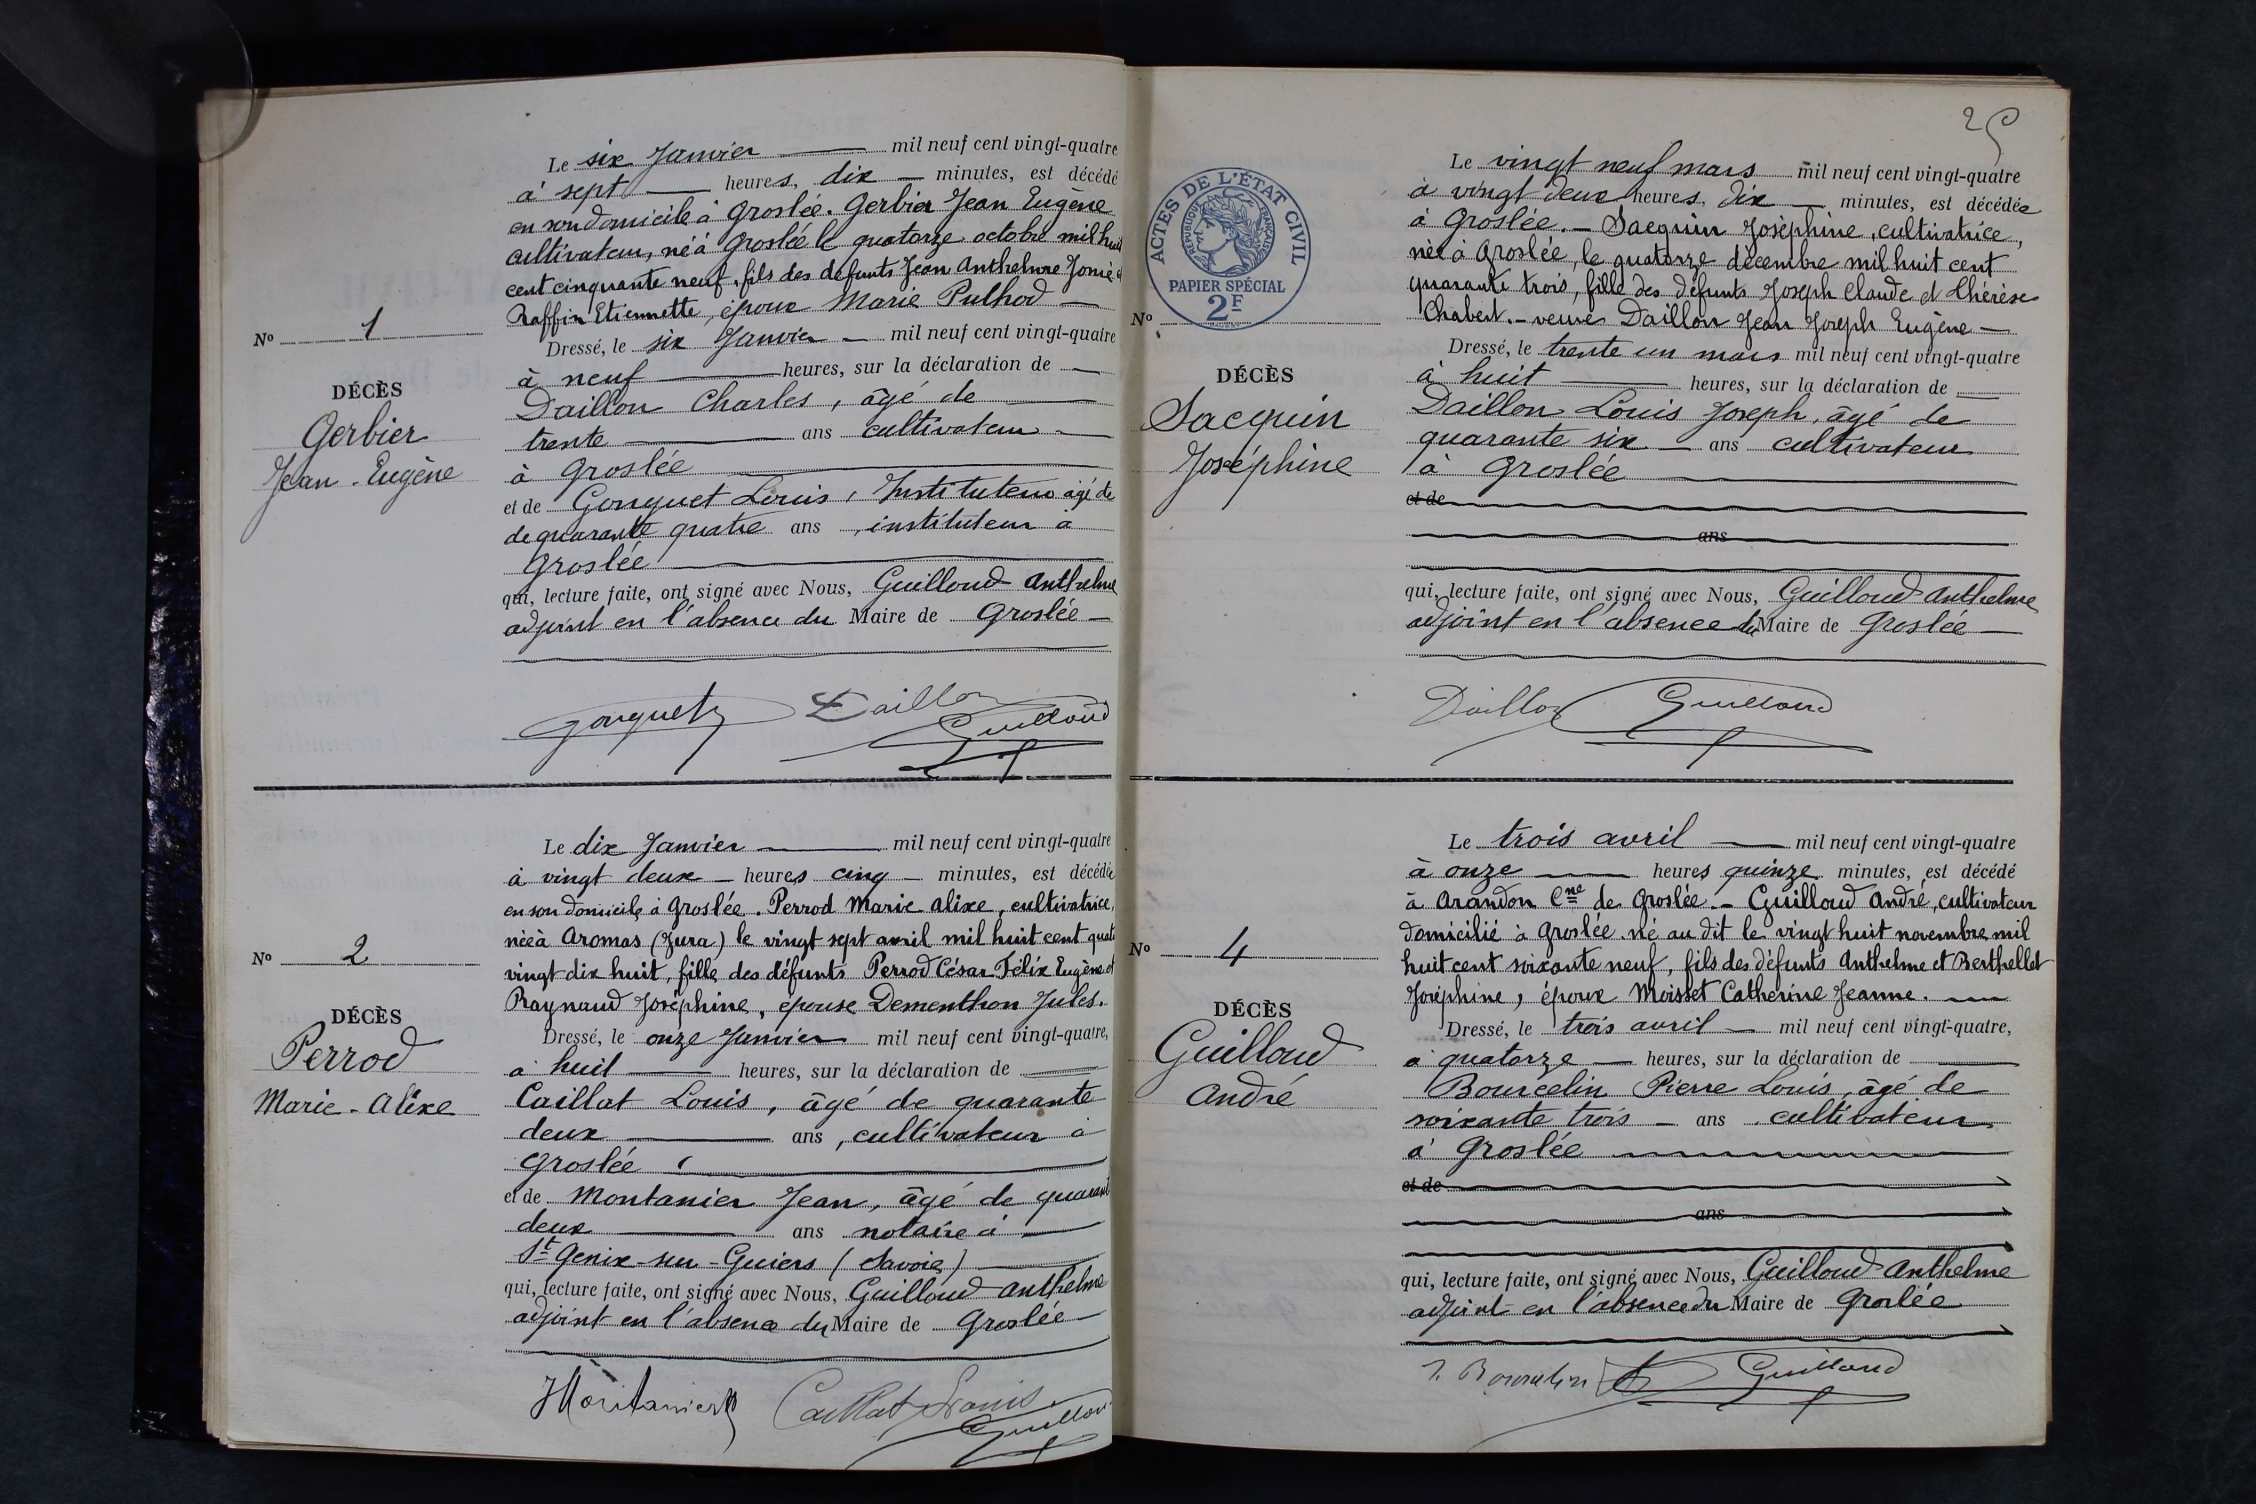 Le six Janvier mil neuf cent vingt-quatre
à sept heures, dix minutes, est décédé
en son domicile à Groslée. Gerbier Jean Eugène
cultivateur, né à Groslée le quatorze octobre mil huit
cent cinquante neuf, fils des défunts Jean Anthelme
Raffin Etiennette, époux Marie Pulhod
Nº 1
DÉCÈS
Gerbier
Jean-Eugène
Dressé, le six Janvier mil neuf cent vingt-quatre
à neuf heures, sur la déclaration de
Daillon Charles, âgé de
trente ans cultivateur
à Groslée
et de Gonguet Louis, Instituteur âgé de
de quarante quatre ans, instituteur à
Groslée
qui, lecture faite, ont signé avec Nous, Guilloud Anthelme
adjoint en l'absence du Maire de Groslée
Gonguet Daillon
Guilloud
Le dix Janvier mil neuf cent vingt-quatre
à vingt deux heures cinq minutes, est décédée
en son domicile à Groslée. Perrod Marie Alixe, cultivatrice,
née à Aromas (Jura) le vingt sept avril mil huit cent quatre
vingt dix huit, fille des défunts Perrod César Félix Eugène et
Raynaud Joséphine, épouse Dementhon Jules.
Nº 2
DÉCÈS
Perrod
Marie-Alixe
Dressé, le onze Janvier mil neuf cent vingt-quatre,
à huit heures, sur la déclaration de
Caillat Louis, âgé de quarante
deux ans, cultivateur à
Groslée
et de Montanier Jean, âgé de quarante
deux ans notaire à
St Genix-sur-Guiers (Savoie)
qui, lecture faite, ont signé avec Nous, Guilloud Anthelme
adjoint en l'absence du Maire de Groslée
JMontanier Caillat Louis
Guilloud
25
ACTES DE L'ÉTAT CIVIL
RÉPUBLIQUE FRANÇAISE
PAPIER SPÉCIAL
2F
Le vingt neuf mars mil neuf cent vingt-quatre
à vingt deux heures, dix minutes, est décédée
à Groslée. - Sacquin Joséphine, cultivatrice,
née à Groslée, le quatorze décembre mil huit cent
quarante trois, fille des défunts Joseph Claude et Thérèse
Chabert. - veuve Daillon Jean Joseph Eugène -
Nº
DÉCÈS
Sacquin
Joséphine
Dressé, le trente un mars mil neuf cent vingt-quatre
à huit heures, sur la déclaration de
Daillon Louis Joseph, âgé de
quarante six ans cultivateur
à Groslée
et de
ans
qui, lecture faite, ont signé avec Nous, Guilloud Anthelme
adjoint en l'absence du Maire de Groslée
Daillon Guilloud
Le trois avril mil neuf cent vingt-quatre
à onze heures quinze minutes, est décédé
à Arandon Cne de Groslée. - Guilloud André, cultivateur
domicilié à Groslée né au dit le vingt huit novembre mil
huit cent soixante neuf, fils des défunts Anthelme et Berthellet
Joséphine, époux Moisset Catherine Jeanne.
Nº 4
DÉCÈS
Guilloud
André
Dressé, le trois avril mil neuf cent vingt-quatre,
à quatorze heures, sur la déclaration de
Bourcelin Pierre Louis, âgé de
soixante trois ans cultivateur
à Groslée
et de
ans
qui, lecture faite, ont signé avec Nous, Guilloud Anthelme
adjoint en l'absence du Maire de Groslée
Bourcelin Guilloud